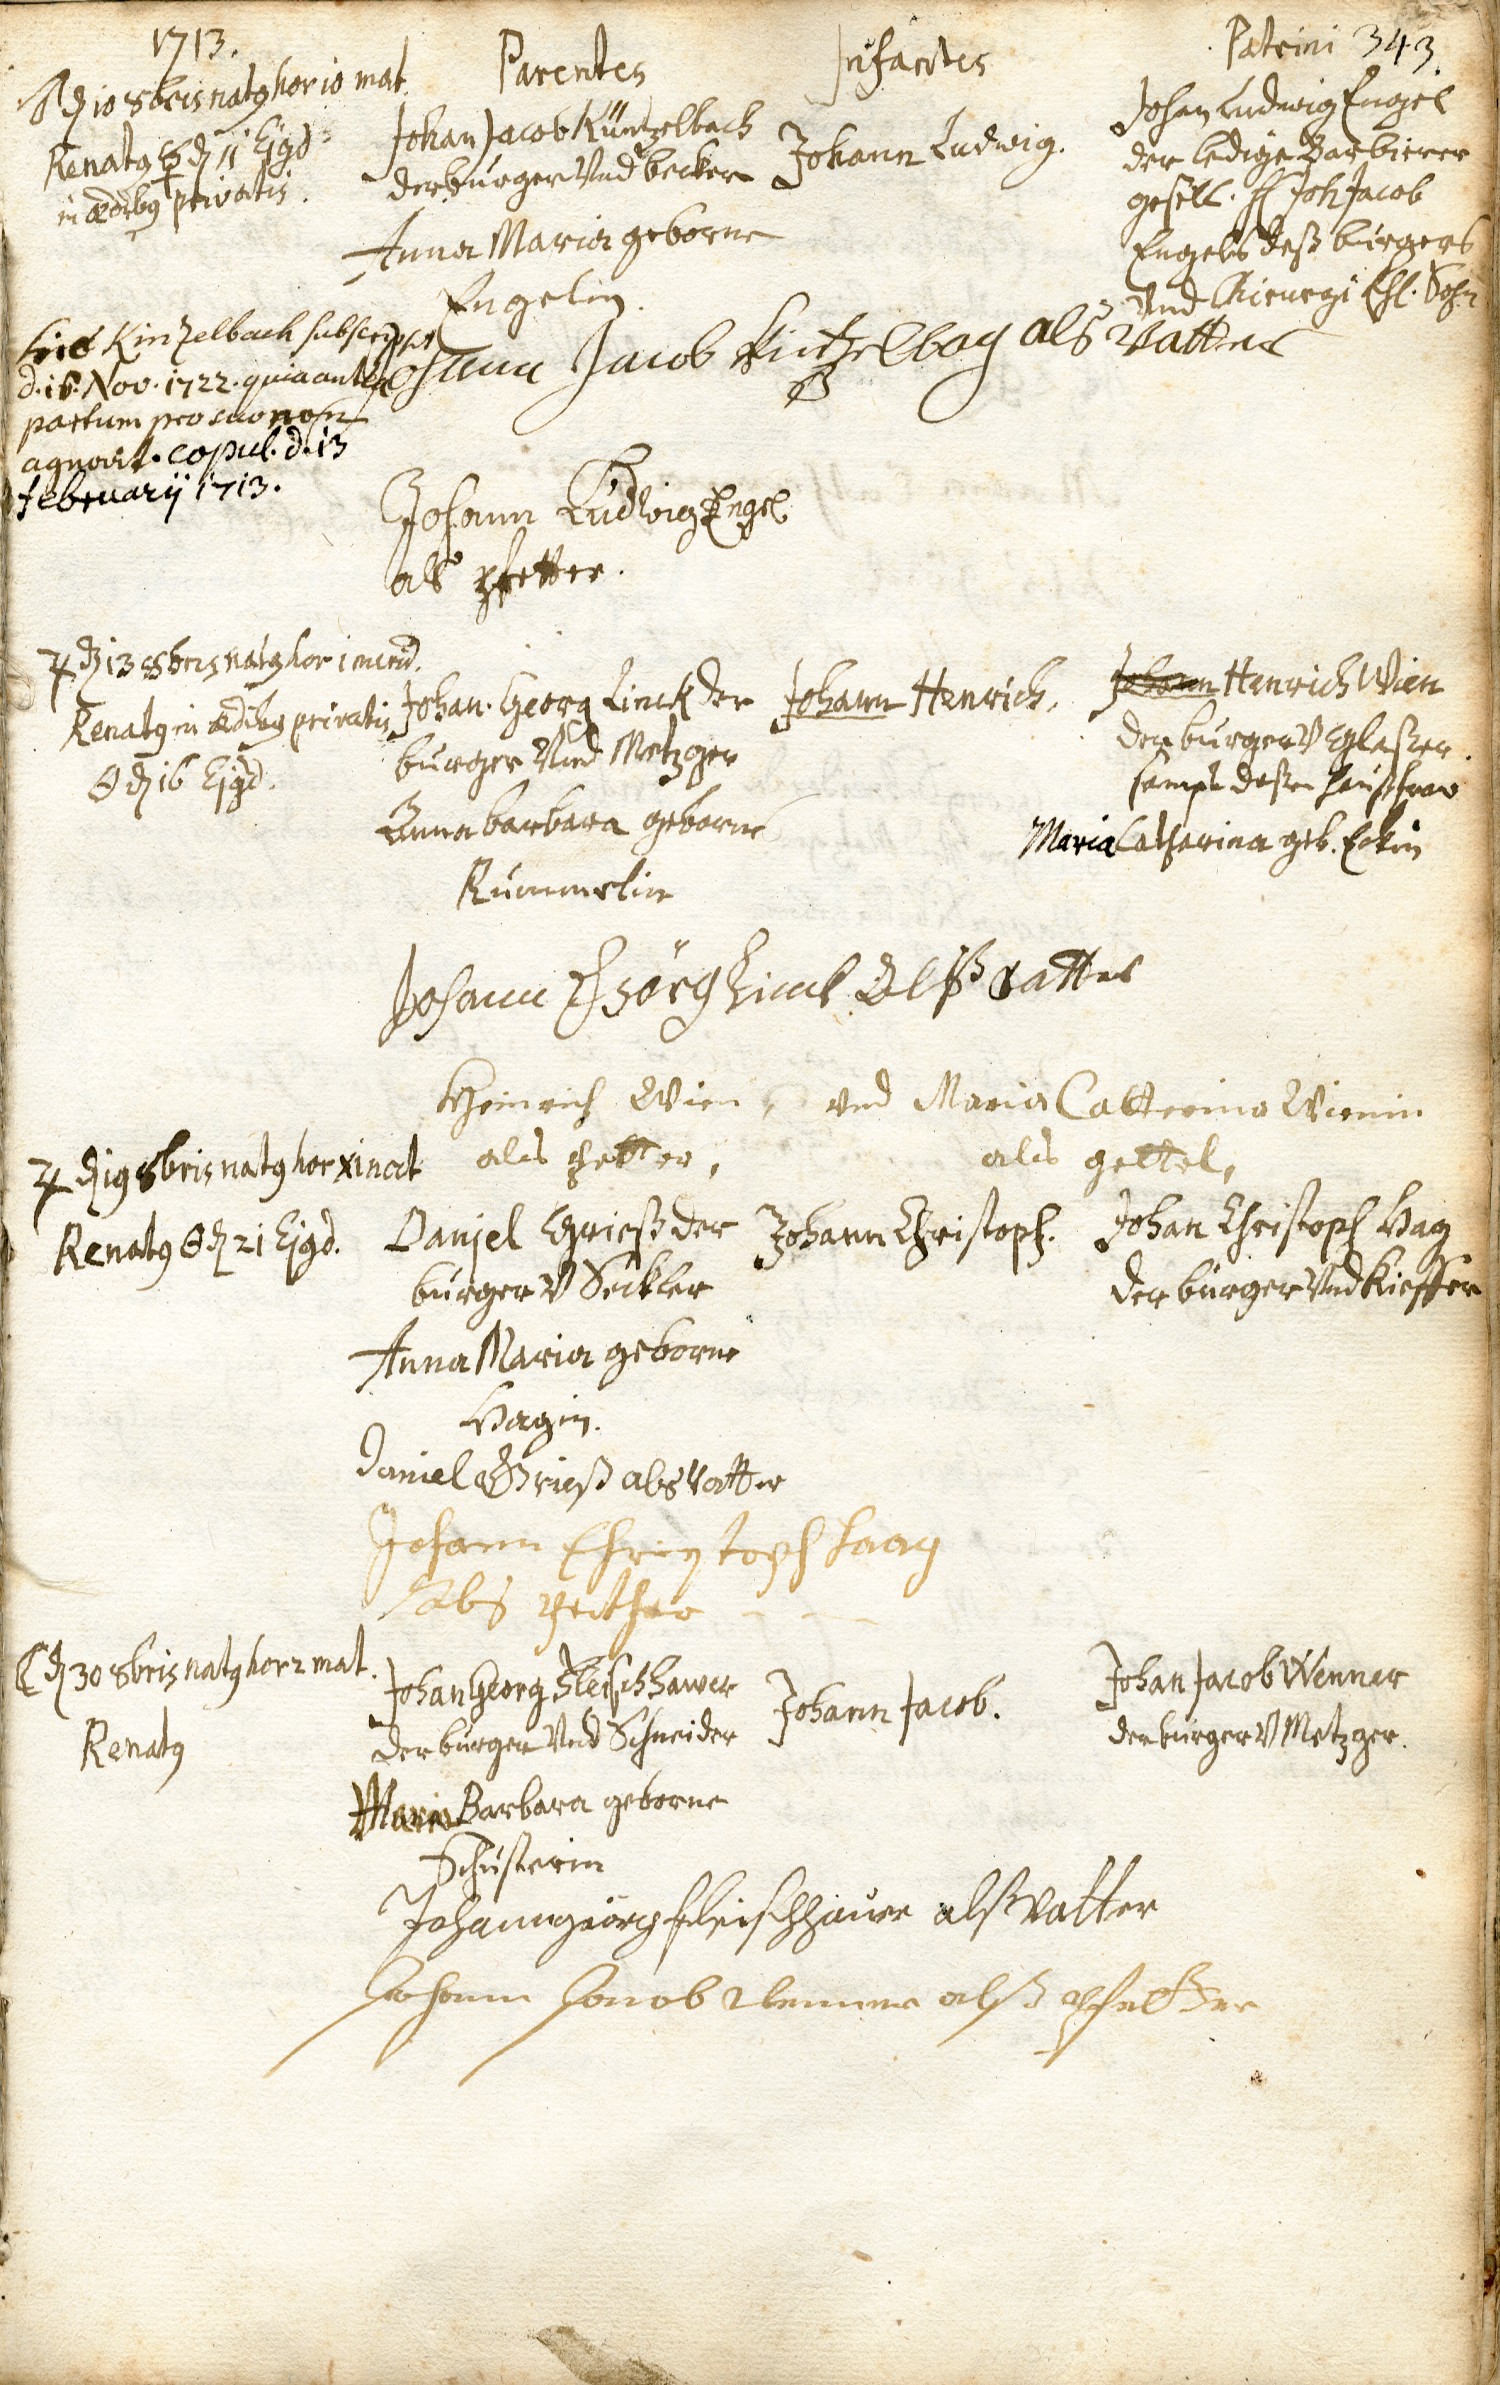 1713.
Parentes
Infantes
Patrini 343.
♂ d 10 8bris natg hor 10 mat.
Renatg ☿ d 11 Ejgd
in ædibg privatis.
Johan Jacob Küntzelbach
der burger Vnd becker
Anna Maria geborne
Engelin.
Johann Ludwig.
Johan Ludwig Engel
der ledige Barbierer
gesell. H Joh Jacob
Engels deß burgers
Vnd Chirurgi Ehl. Sohn
Johann Jacob Kintzelbag als Vatter
hic Kinzelbach subscripsit
d. 16. Nov. 1722. quia antea
partum pro suo non
agnovit. copul. d. 13
februarij 1713.
Johann Ludwig Engel
als pfetter.
♃ d 13 8bris natg hor 1 merid.
Renatg in ædibg privatis
☉ d 16 Ejgd.
Johan. Georg Linck der
burger Vnd Metzger
Anna barbara geborne
Rummelin
Johann Henrich.
Johann Henrich Wien
der burger V Glaßer
sampt deßen haußfraw
Maria Catharina geb. Eckin
Johann Geörg Linck Alß Vatter
Heinrich Wien, vnd Maria Catterina Wienin
als petter, als gettel,
♃ d 19 8bris natg hor xi mat
Renatg ☉ d 21 Ejgd.
Daniel Grieß der
burger V Seckler
Anna Maria geborne
Hagin.
Johann Christoph.
Johan Christoph Hag
der burger Vnd Kieffer
Daniel Grieß als Vatter
Johann Christoph haag
Als petther
☾ d 30 8bris natg hor 2 mat.
Renatg
Johan Georg Fleischhawer
der burger Vnd Schneider
Maria Barbara geborne
Schusterin
Johann Jacob.
Johan Jacob Wenner
der burger V Metzger.
Johann georg fleischhauer alß Vatter
Johann Jacob Wenner alß pfetter